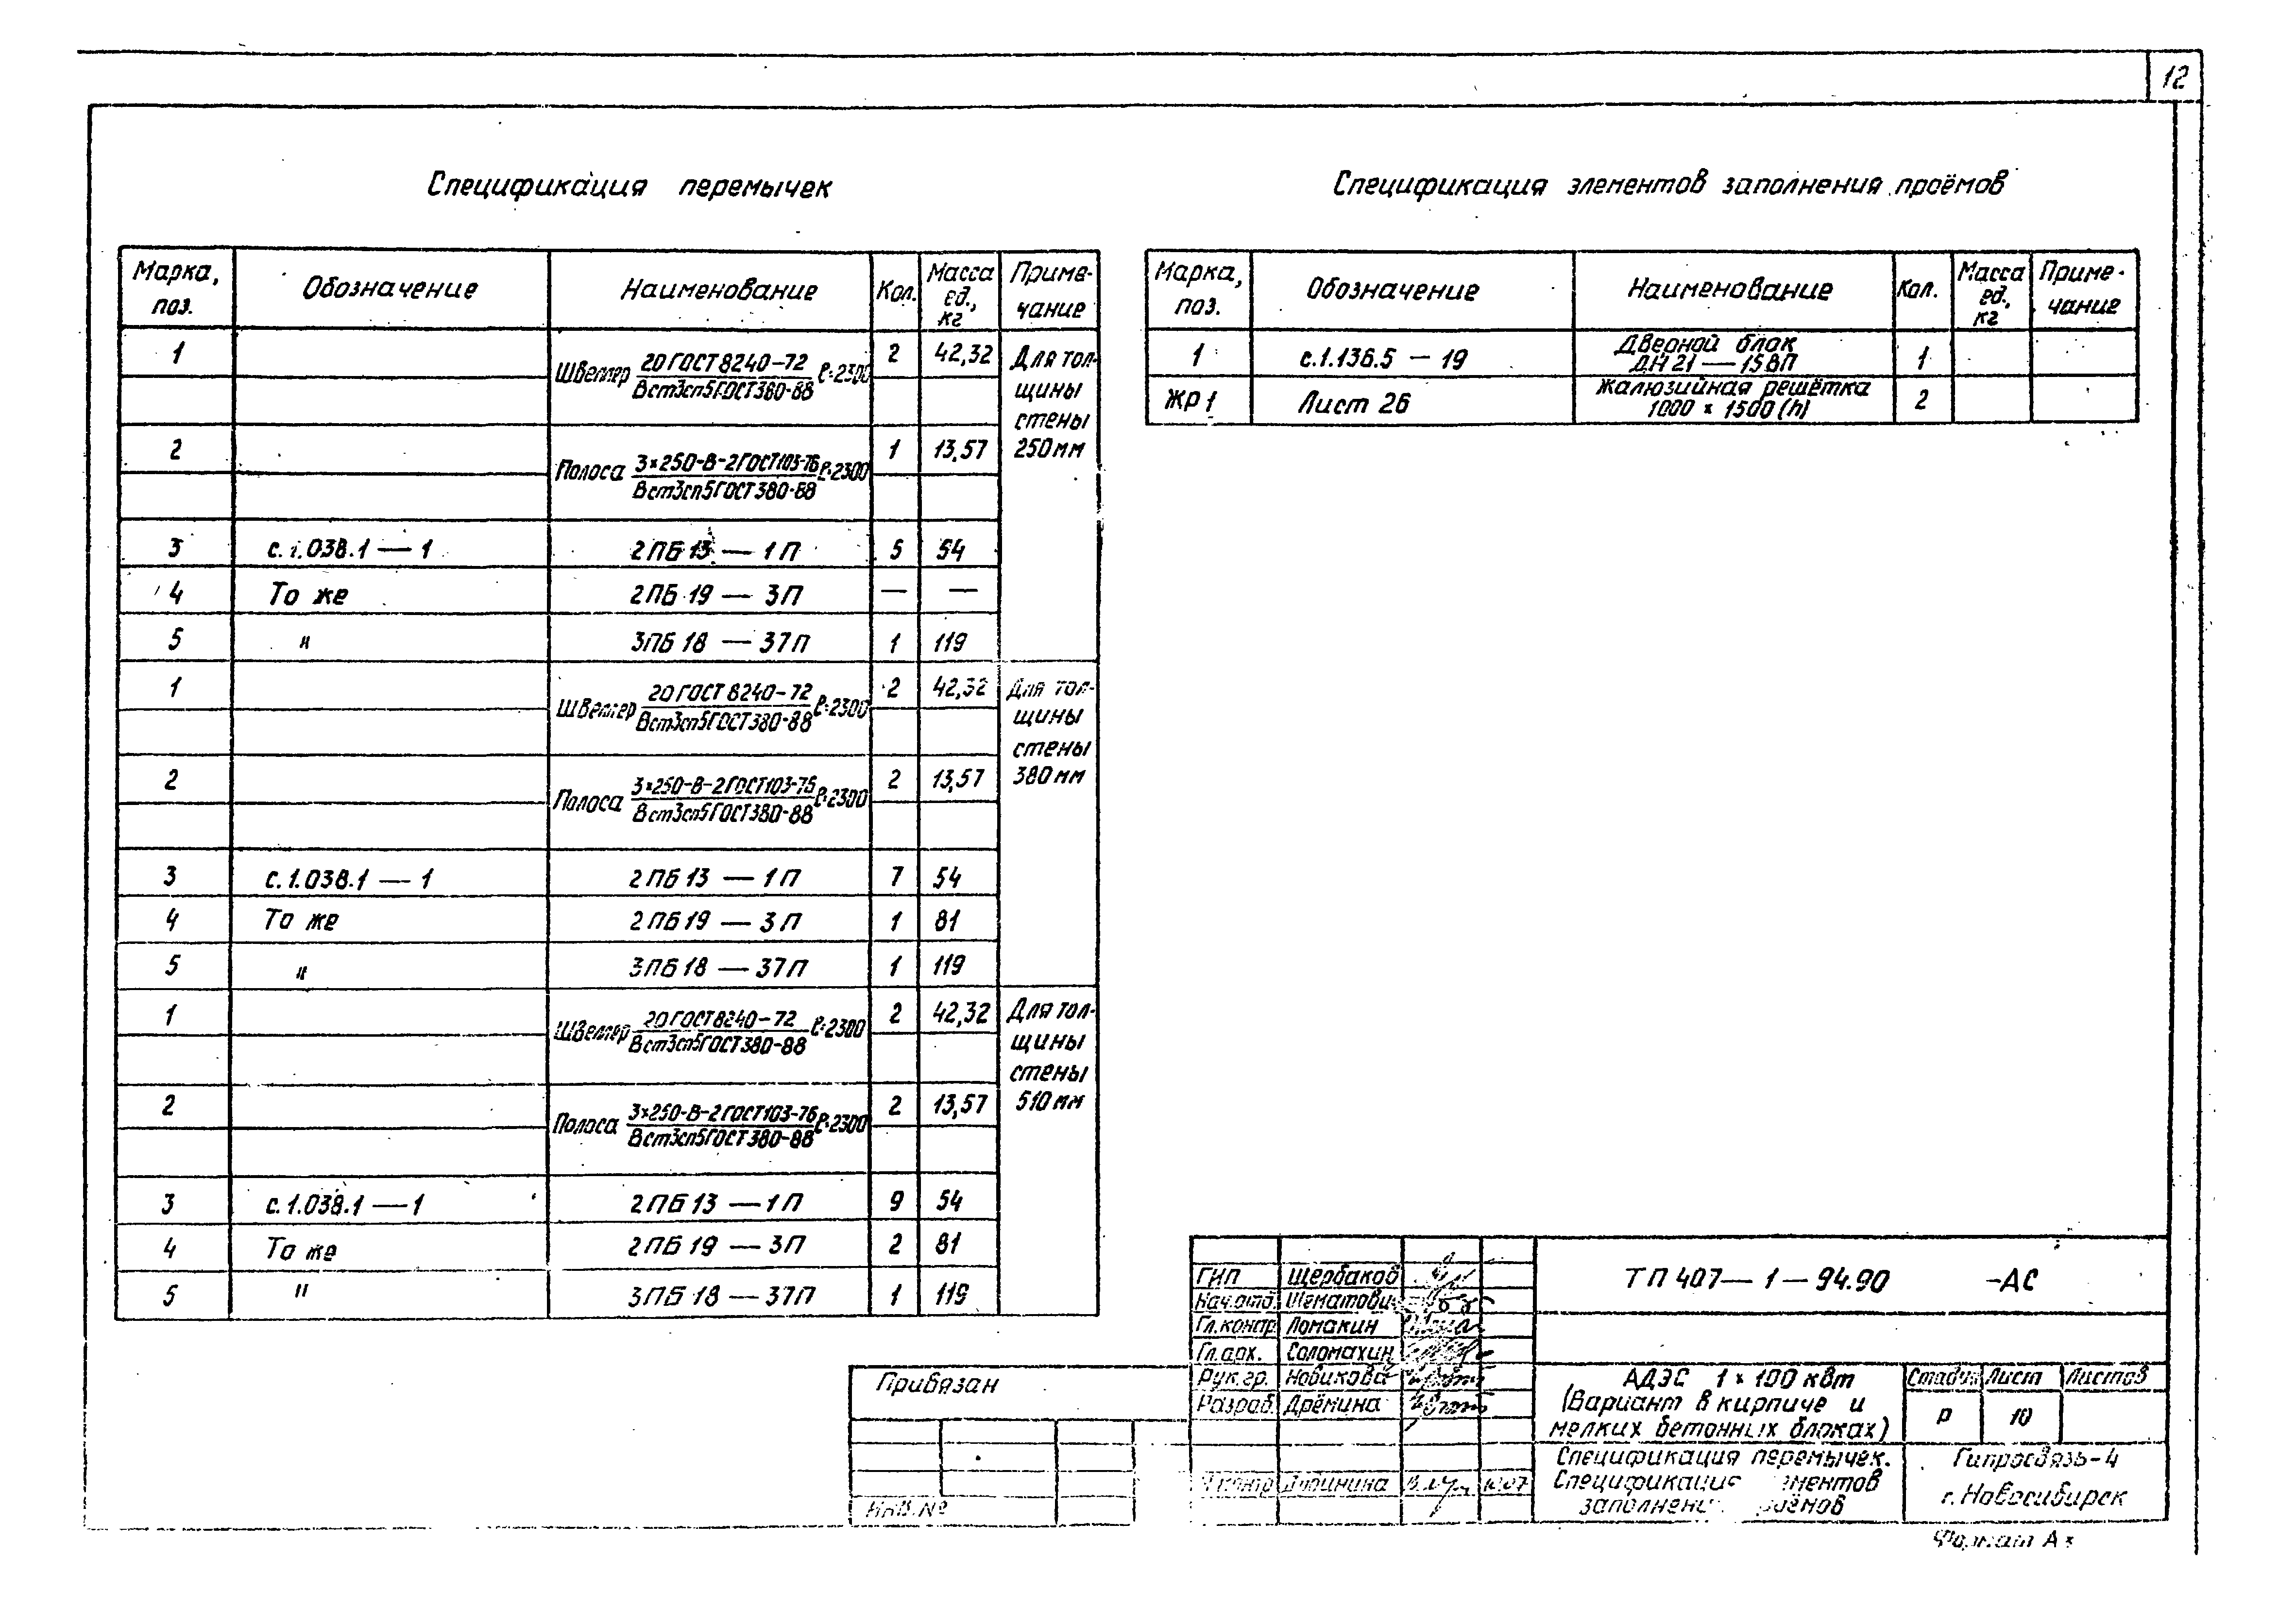 12
Спецификация перемычек
Марка, поз. Обозначение Наименование Кол. Масса ед., кг Примечание
1 Швеллер 20 ГОСТ 8240-72 / Вст3сп5 ГОСТ 380-88 ℓ=2300 2 42,32 Для толщины стены 250 мм
2 Полоса 3×250-В-2 ГОСТ 103-76 / Вст3сп5 ГОСТ 380-88 ℓ=2300 1 13,57
3 с.1.038.1 — 1 2ПБ 13 — 1П 5 54
4 То же 2ПБ 19 — 3П — —
5 " 3ПБ 18 — 37П 1 119
1 Швеллер 20 ГОСТ 8240-72 / Вст3сп5 ГОСТ 380-88 ℓ=2300 2 42,32 Для толщины стены 380 мм
2 Полоса 3×250-В-2 ГОСТ 103-76 / Вст3сп5 ГОСТ 380-88 ℓ=2300 2 13,57
3 с.1.038.1 — 1 2ПБ 13 — 1П 7 54
4 То же 2ПБ 19 — 3П 1 81
5 " 3ПБ 18 — 37П 1 119
1 Швеллер 20 ГОСТ 8240-72 / Вст3сп5 ГОСТ 380-88 ℓ=2300 2 42,32 Для толщины стены 510 мм
2 Полоса 3×250-В-2 ГОСТ 103-76 / Вст3сп5 ГОСТ 380-88 ℓ=2300 2 13,57
3 с.1.038.1 — 1 2ПБ 13 — 1П 9 54
4 То же 2ПБ 19 — 3П 2 81
5 " 3ПБ 18 — 37П 1 119
Спецификация элементов заполнения проёмов
Марка, поз. Обозначение Наименование Кол. Масса ед., кг Примечание
1 с.1.136.5 — 19 Дверной блок ДН 21 — 15 ВП 1
ЖР1 Лист 26 Жалюзийная решётка 1000 × 1500 (h) 2
Привязан
Инв.№
ГИП Щербаков
Нач.отд.
Гл.констр Ломакин
Гл.арх. Соломахин
Рук.гр. Новикова
Разраб. Дрёмина
Н.контр
ТП 407— 1 — 94.90 -АС
АДЭС 1 × 100 кВт
(Вариант в кирпиче и
мелких бетонных блоках)
Стадия Лист Листов
Р 10
Спецификация перемычек.
Спецификация элементов
заполнения проёмов
Гипросвязь-4
г. Новосибирск
Формат А3